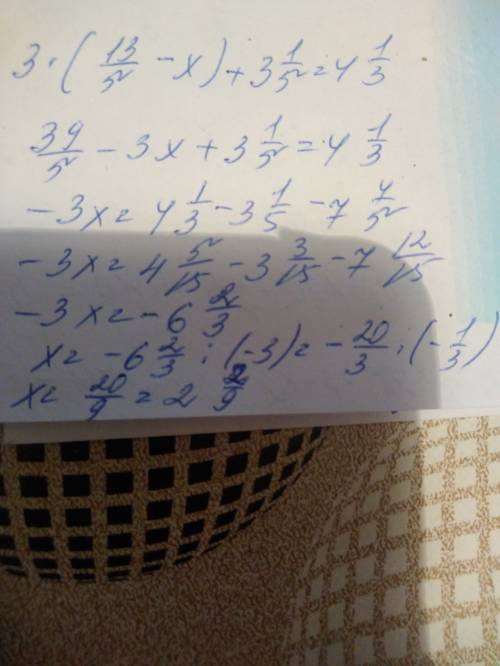 3 · (13/5 - x) + 3 1/5 = 4 1/3
39/5 - 3x + 3 1/5 = 4 1/3
-3x = 4 1/3 - 3 1/5 - 7 4/5
-3x = 4 5/15 - 3 3/15 - 7 12/15
-3x = -6 2/3
x = -6 2/3 : (-3) = -20/3 · (-1/3)
x = 20/9 = 2 2/9